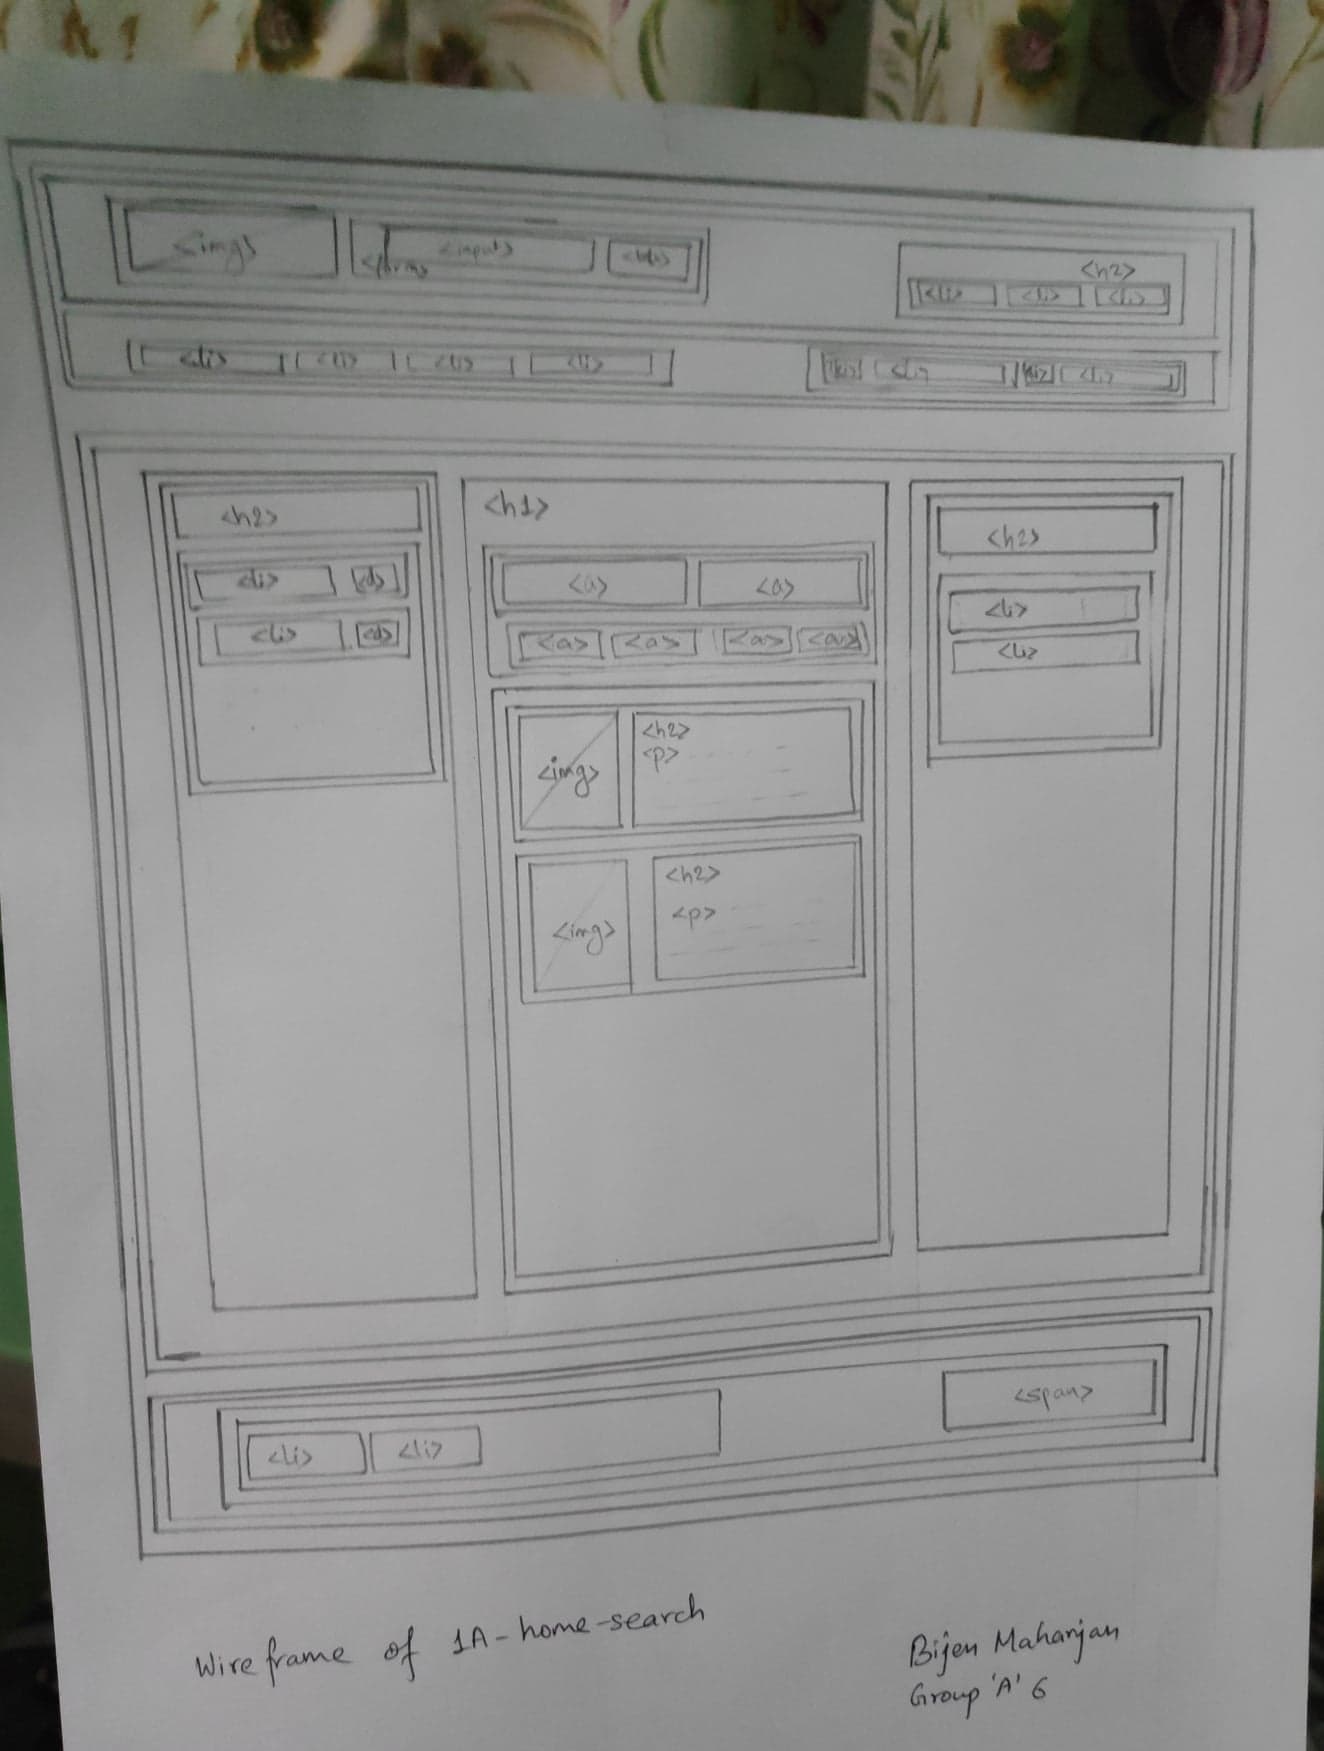 <img>
<form> <input>
<h2>
<li> <li> <li>
<li> <li> <li> <li>
<li> <li>
<h2>
<li>
<li>
<h1>
<a> <a>
<a> <a> <a>
<img>
<h2>
<p>
<img>
<h2>
<p>
<h2>
<li>
<li>
<li> <li>
<span>
Wireframe of 1A-home-search
Bijen Maharjan
Group 'A' 6